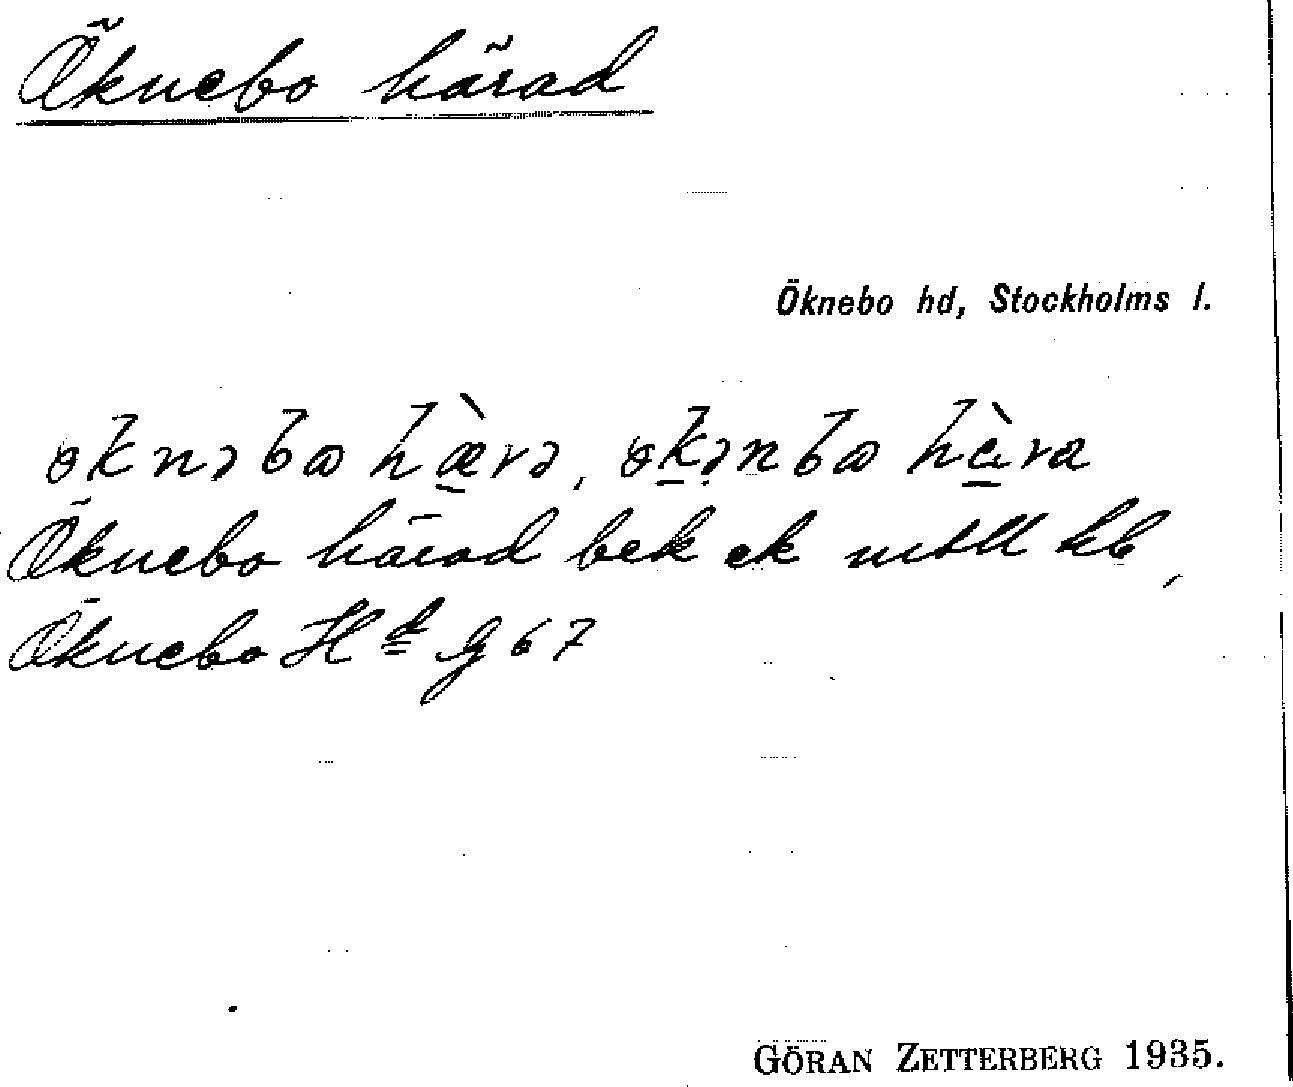 Öknebo härad
Öknebo hd, Stockholms l.
øknəbω hæ̀rə, økənbω hàra
Öknebo härad bek ek mtll kb,
Öknebo Hd G 67
GÖRAN ZETTERBERG 1935.